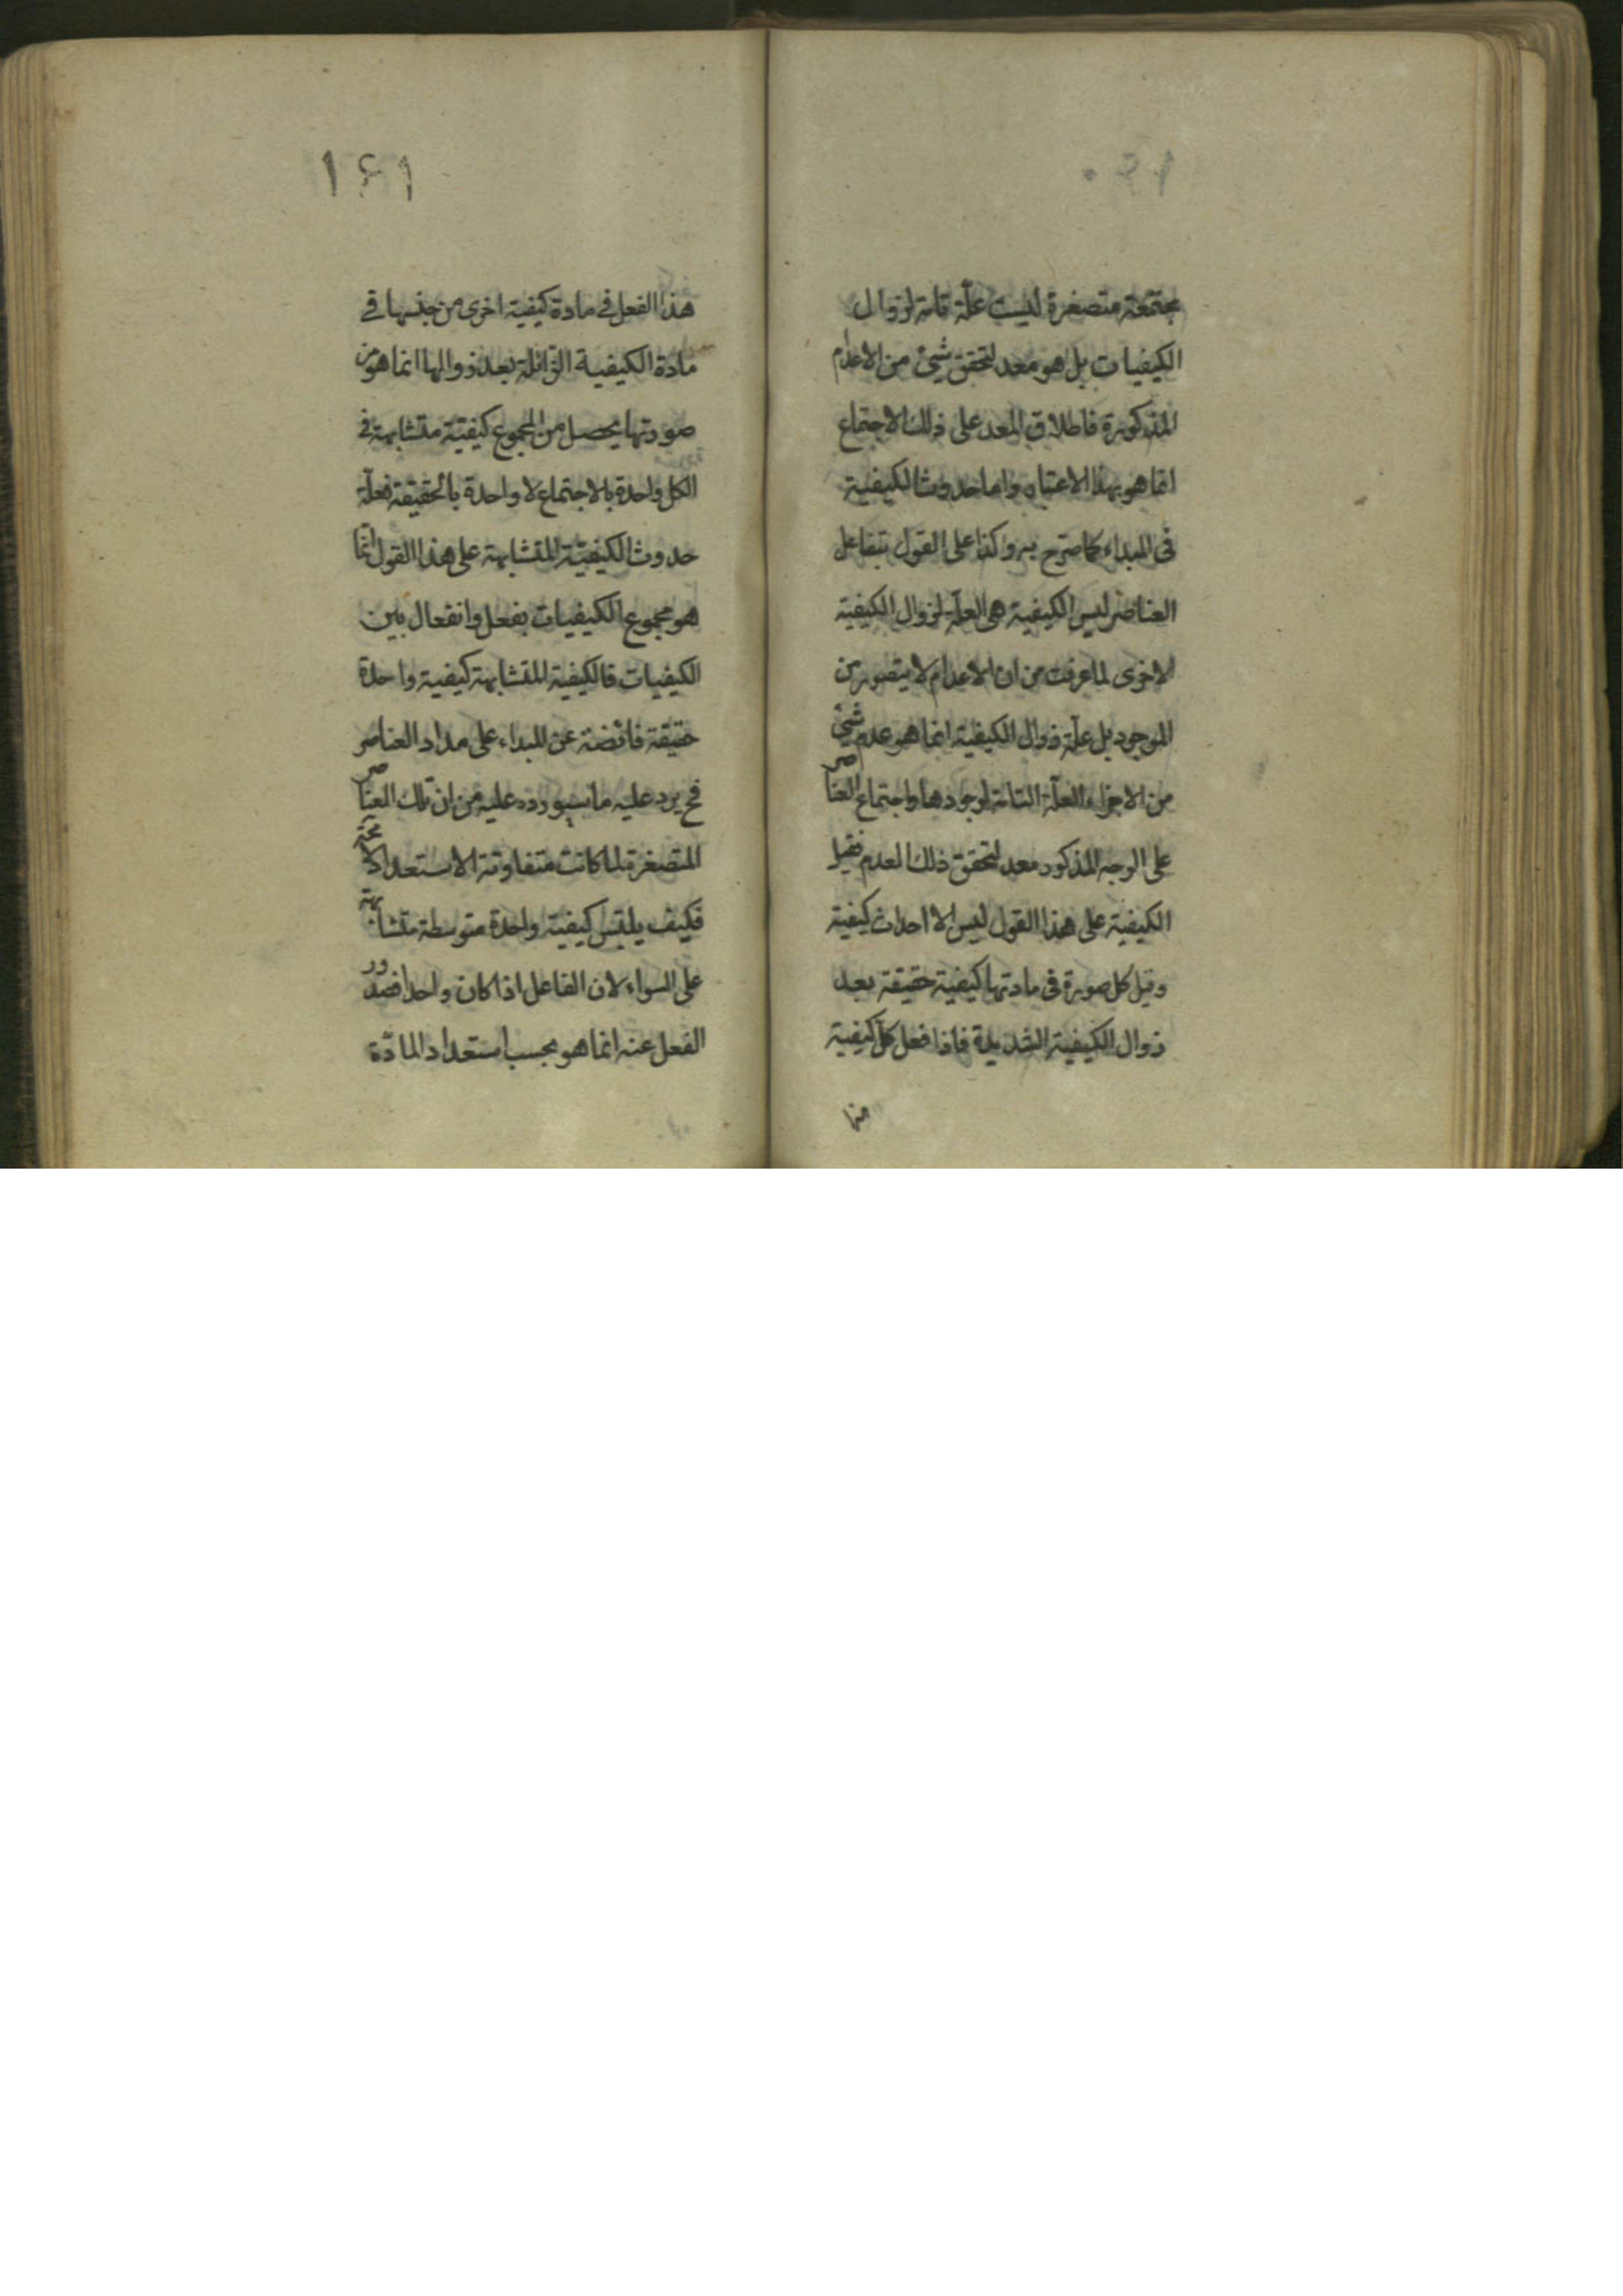 ١٦٠
مجتمعة متصغرة ليست علّة تامة لزوال
الكيفيات بل هو معد لتحقق شيئ من الاعدام
المذكورة فاطلاق المعد على ذلك الاجتماع
انما هو بهذا الاعتبار واما حدوث الكيفية
فى المبداء كما صرّح به وكذا على القول بتفاعل
العناصر ليس الكيفية هى العلة لزوال الكيفية
الاخرى لما عرفت من ان الاعدام لا يتصور من
الموجود بل علّة زوال الكيفية انما هو عدم شيئ
من الاجزاء العلّة التامة لوجودها واجتماع العناصر
على الوجه المذكور معد لتحقق ذلك العدم
الكيفية على هذا القول ليس الا احداث كيفية
وقيل كل صورة فى مادتها كيفية حقيقة بعد
زوال الكيفية الشديدة فاذا فعل كل كيفية
منها
١٦١
هذا الفعل فى مادة كيفية اخرى من جنسها فى
مادة الكيفية الزائلة بعد زوالها انما هو من
صورتها يحصل من المجموع كيفيّة متشابهة فى
الكل واحدة بالاجتماع لا واحدة بالحقيقة فعلّة
حدوث الكيفيّة المتشابهة على هذا القول انّما
هو مجموع الكيفيات بفعل وانفعال بين
الكيفيات فالكيفية المتشابهة كيفية واحدة
حقيقة فائضة عن المبداء على مداد العناصر
فح يرد عليه ما سيورده عليه من ان تلك العناصر
المتصغرة لما كانت متفاوتة الاستعداد
فكيف يلتبس كيفية واحدة متوسطة متشابهة
على السواء لان الفاعل اذا كان واحدا فصدور
الفعل عنه انما هو بحسب استعداد المادّة